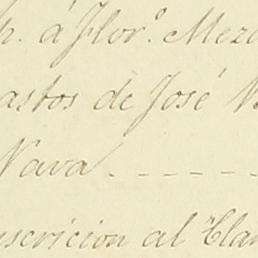 p. á Flor.º Meza
astos de José N
Nava
nscricion al Clam